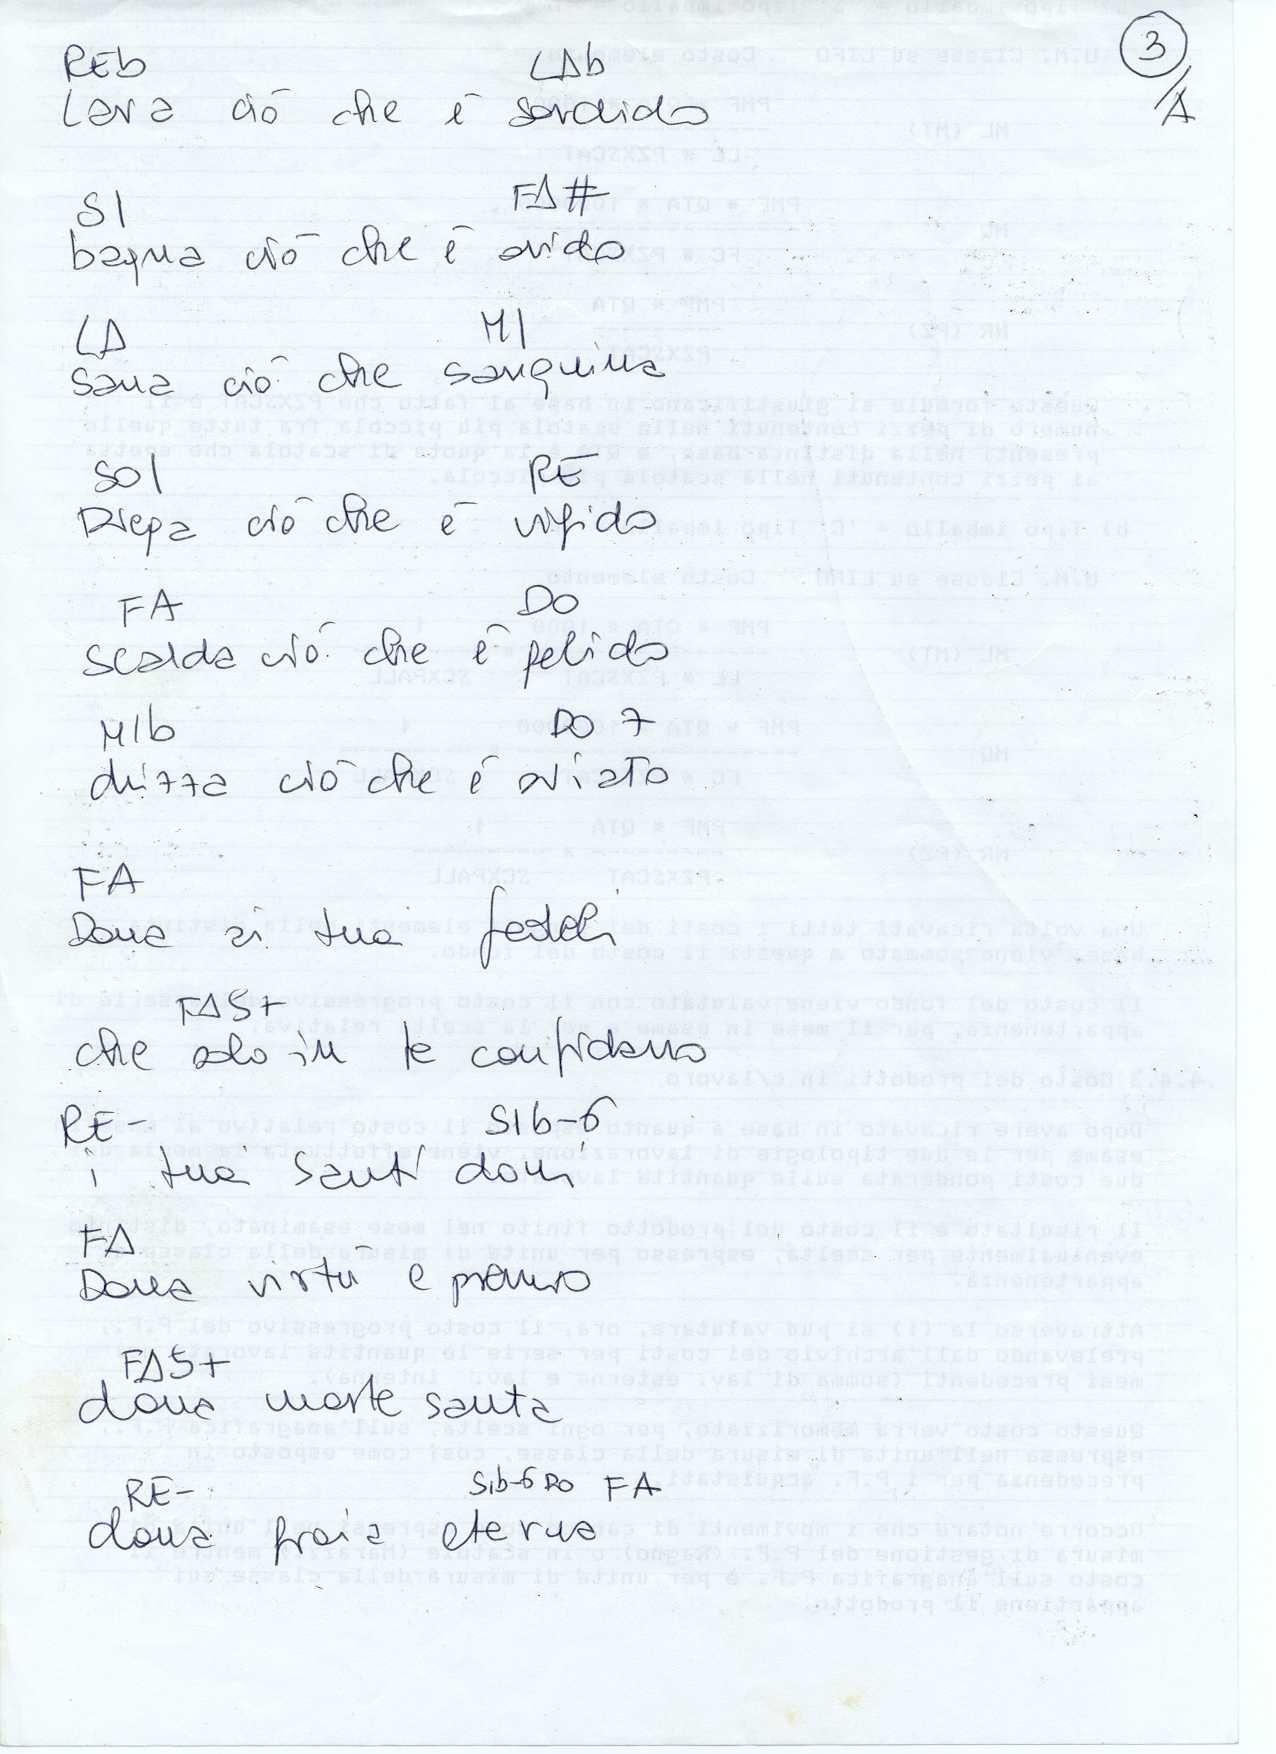 3/A
REb LAb
Lava ciò che è sordido
SI FA#
bagna ciò che è arido
LA MI
sana ciò che sanguina
SOL RE
Piega ciò che è rigido
FA DO
scalda ciò che è gelido
MIb DO7
drizza ciò che è sviato
FA
Dona ai tuoi fedeli
FA5+
che solo in te confidano
RE- SIb-6
i tuoi santi doni
FA
Dona virtù e premio
FA5+
dona morte santa
RE- Sib-6 DO FA
dona gioia eterna